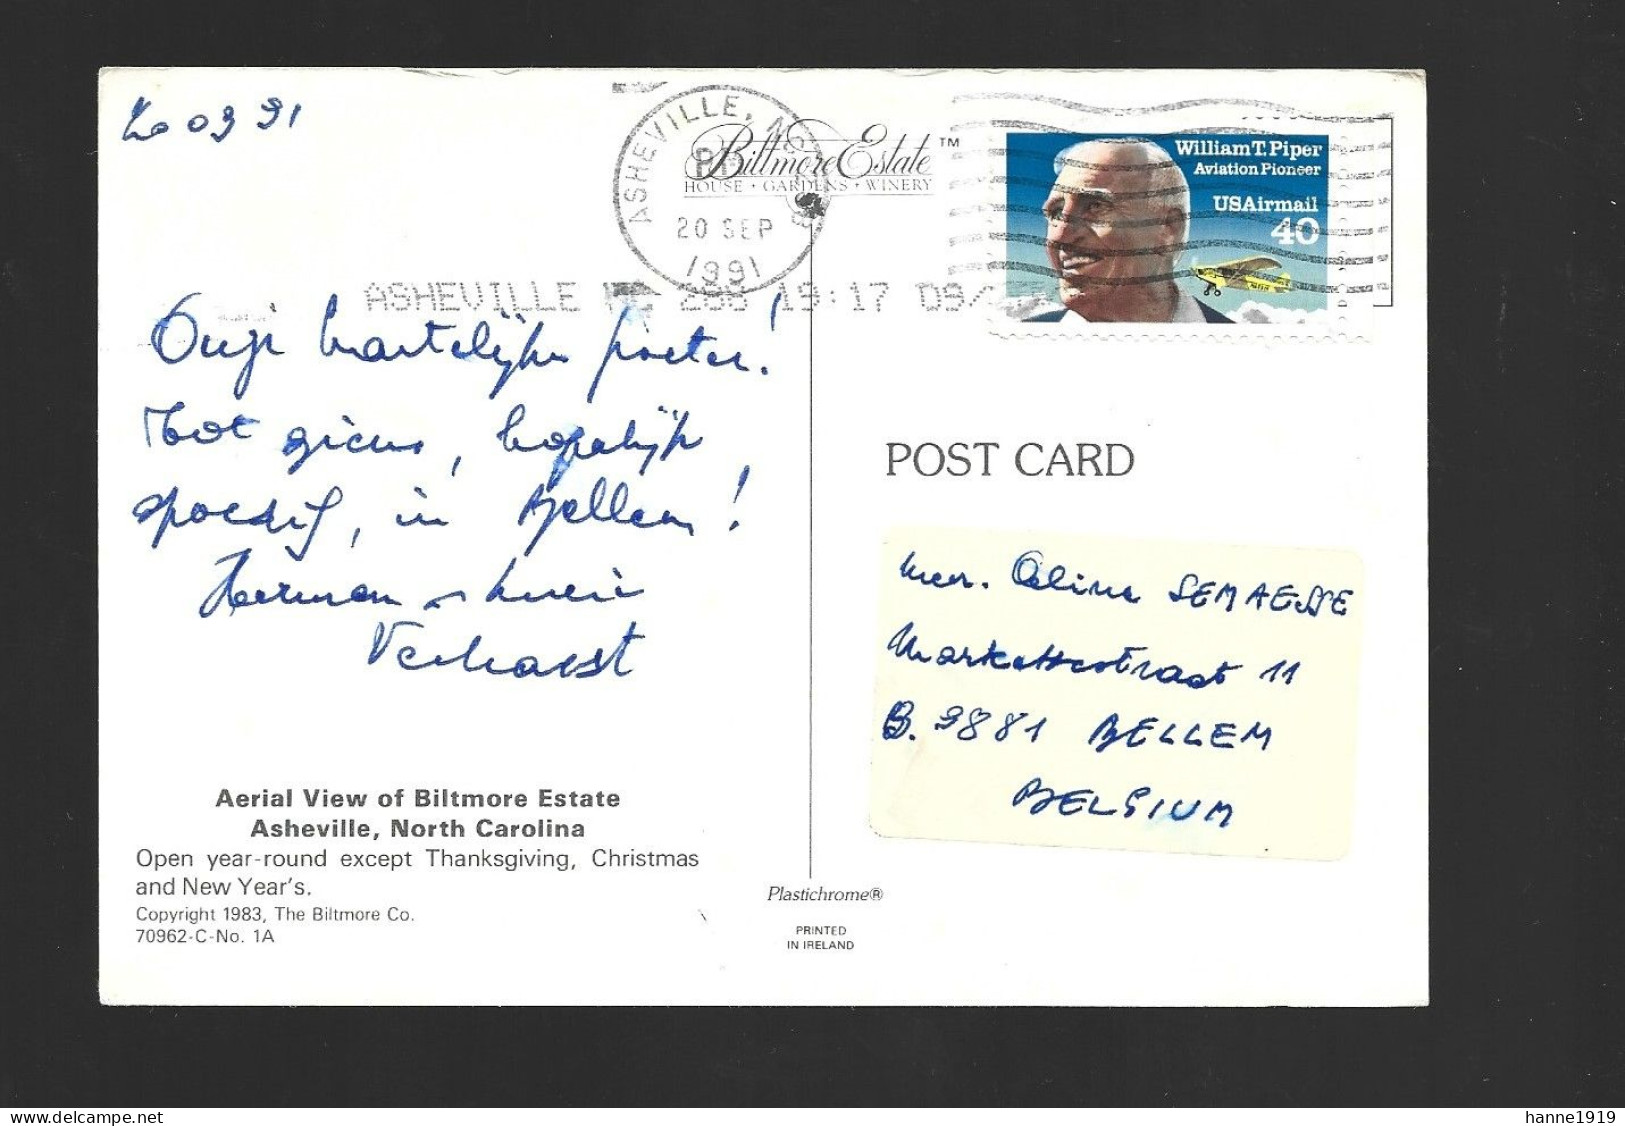 20 09 91
ASHEVILLE, NC
PM
20 SEP
1991
Biltmore Estate™
HOUSE · GARDENS · WINERY
William T. Piper
Aviation Pioneer
USAirmail
40
ASHEVILLE NC 288 19:17 09/
Onze hartelijke groeten!
Tot ziens, hopelijk
spoedig, in Bellem!
Herman
Verhaest
POST CARD
Mevr. Celina SEMAESSE
Markettestraat 11
B. 9881 BELLEM
BELGIUM
Aerial View of Biltmore Estate
Asheville, North Carolina
Open year-round except Thanksgiving, Christmas
and New Year's.
Copyright 1983, The Biltmore Co.
70962-C-No. 1A
Plastichrome®
PRINTED
IN IRELAND
delcampe.net
hanne1919